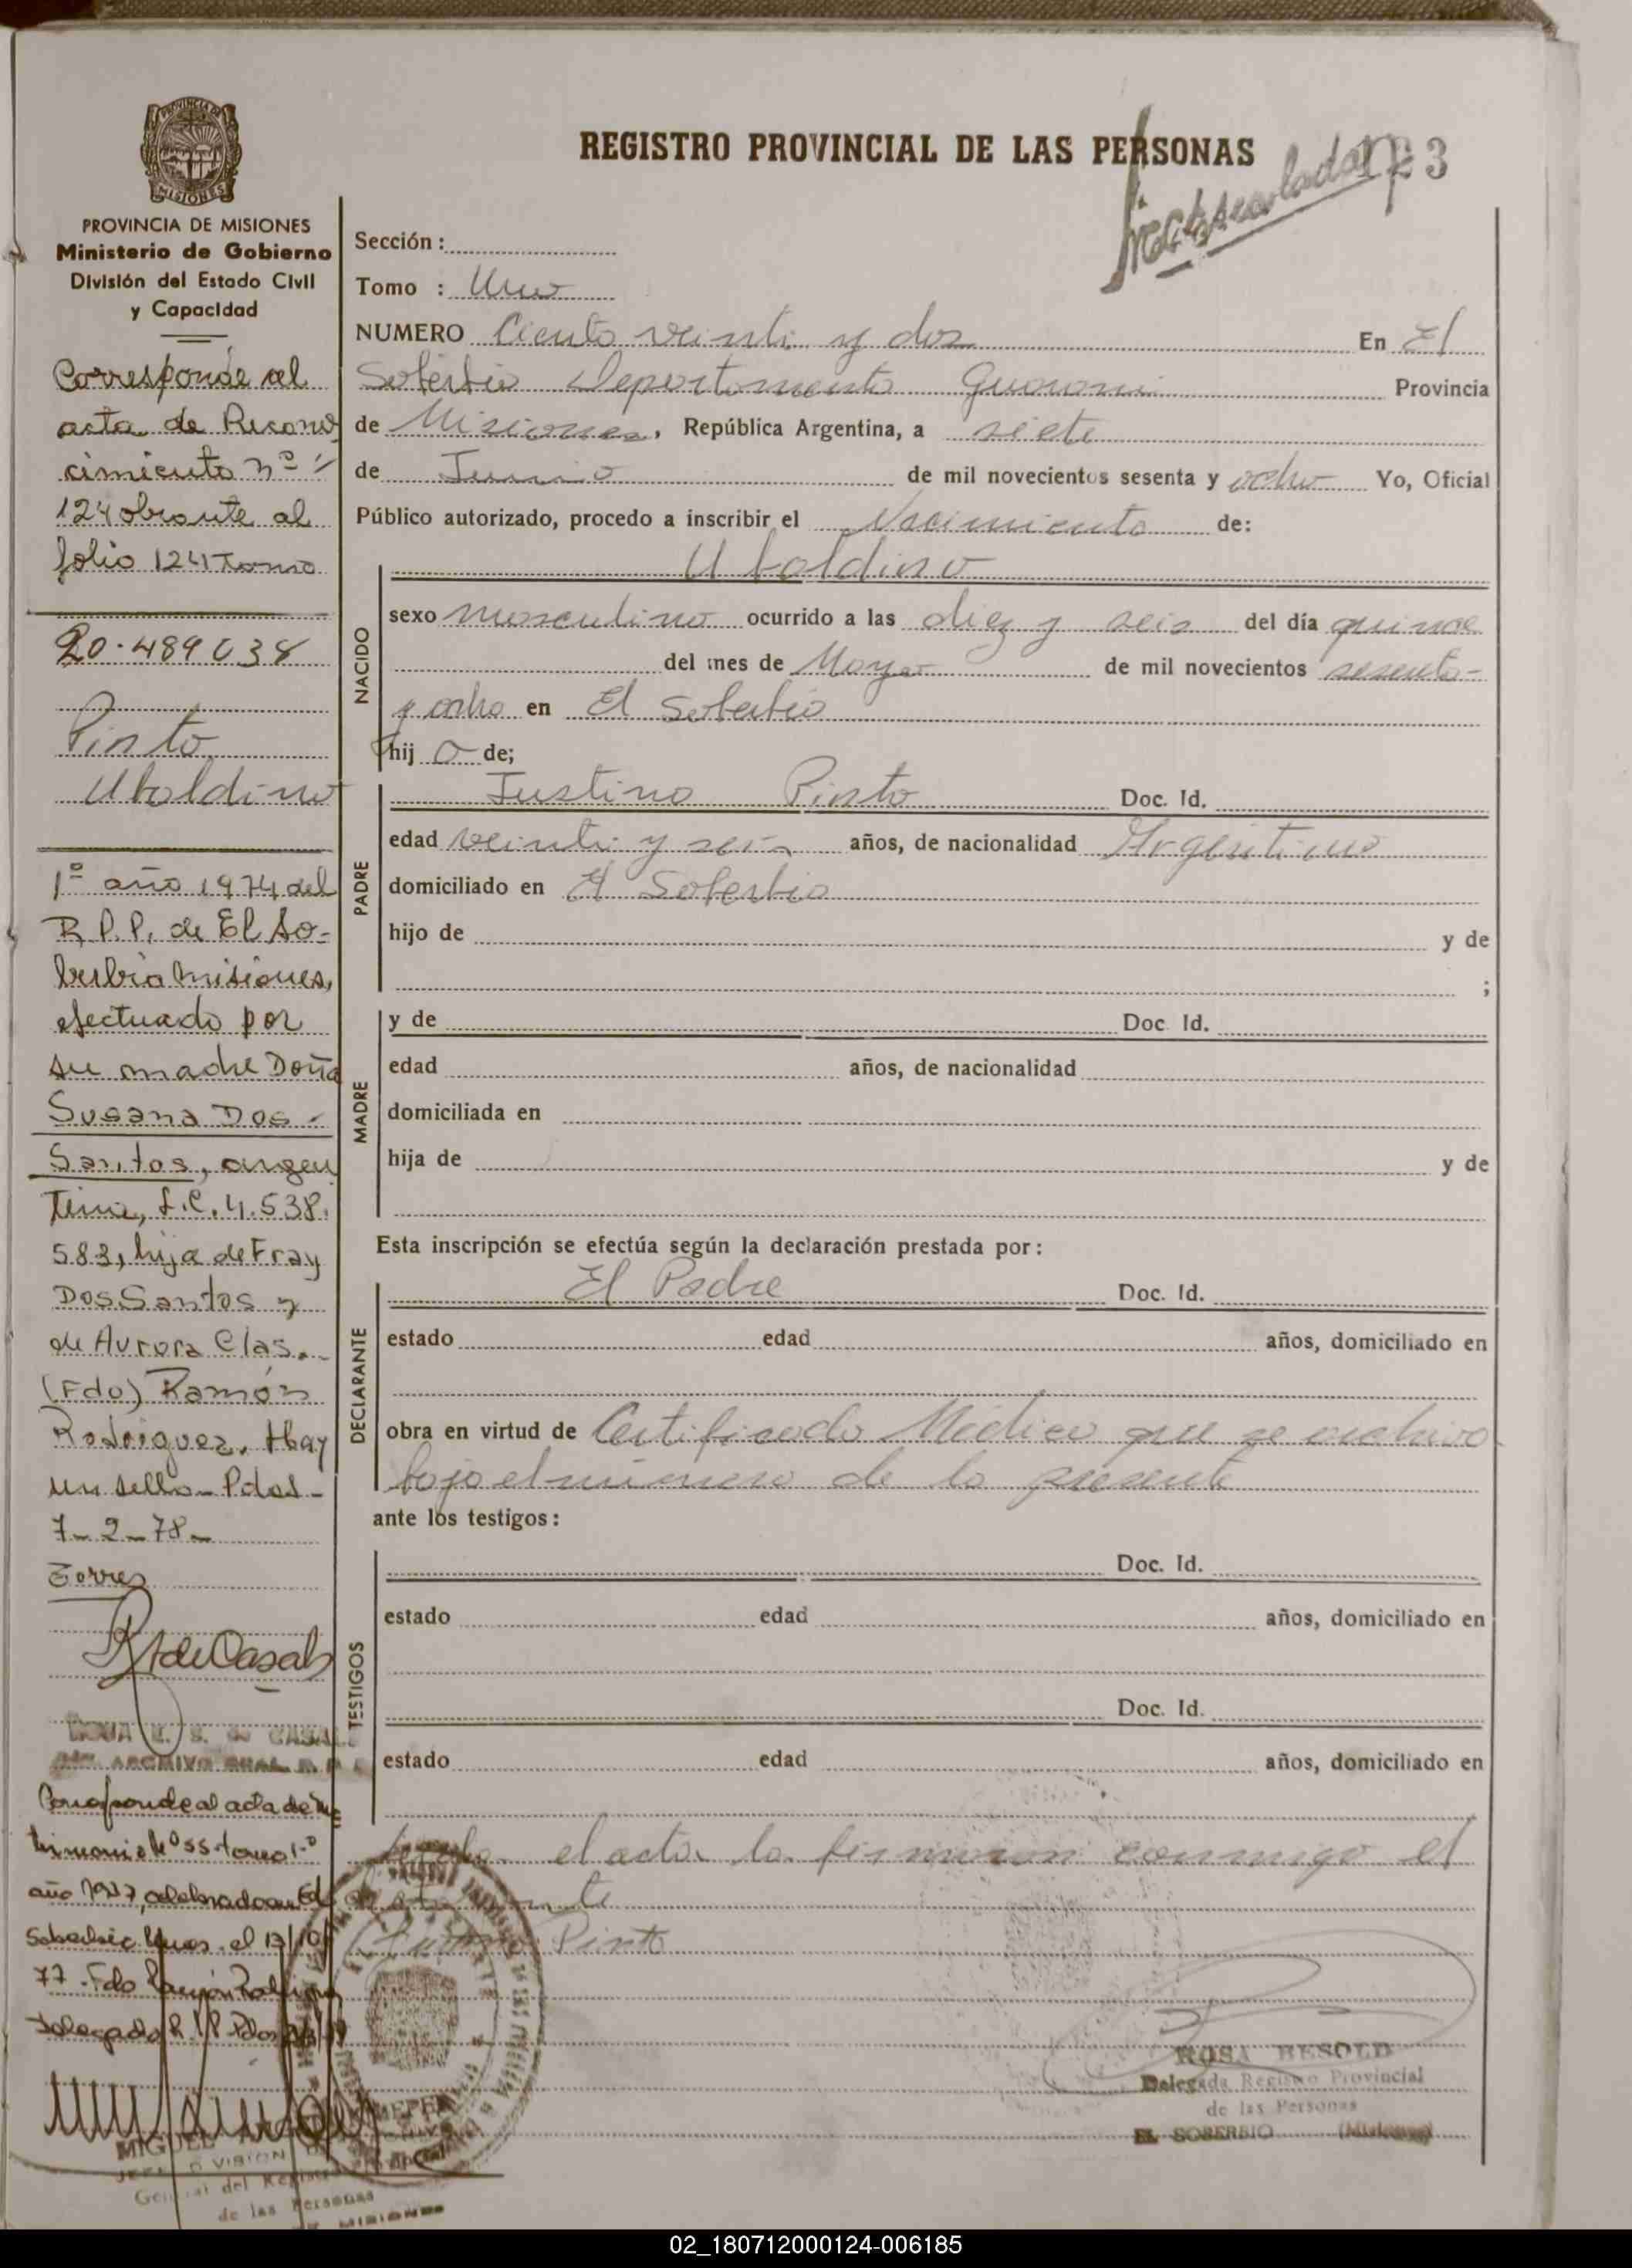 PROVINCIA DE MISIONES
Ministerio de Gobierno
División del Estado Civil
y Capacidad
Corresponde al
acta de Recono
cimiento nº
124 obrante al
folio 124 Tomo
20.489638
Pinto
Ubaldino
1º año 1974 del
R.P.P. de El So-
berbio Misiones,
efectuado por
su madre Doña
Susana Dos
Santos, argen
tina, L.C. 4.538.
583, hija de Fray
Dos Santos y
de Aurora Clas.
(Fdo) Ramón
Rodriguez. Hay
un sello - Pdas -
7-2-78-
Torres
de Casals
S. de CASAL
ARCHIVO GRAL.
Corresponde al acta de Ma
trimonio Nº 55 tomo 1º
año 1977, celebrado en El
Soberbio Mnes. el 13/10/
77. Fdo Ramón Rodriguez
Delegado R.P.P. Pdas
MIGUEL
JEFE DIVISION
General del Registro
de las Personas
MISIONES
REGISTRO PROVINCIAL DE LAS PERSONAS
3
Sección :
Tomo : Uno
NUMERO Ciento veinti y dos En El
Soberbio Departamento Guarani Provincia
de Misiones, República Argentina, a siete
de Junio de mil novecientos sesenta y ocho Yo, Oficial
Público autorizado, procedo a inscribir el Nacimiento de:
NACIDO
Ubaldino
sexo masculino ocurrido a las diez y seis del día quince
del mes de Mayo de mil novecientos sesenta-
y ocho en El Soberbio
hij o de;
PADRE
Justino Pinto Doc. Id.
edad veinti y seis años, de nacionalidad Argentino
domiciliado en El Soberbio
hijo de y de
;
MADRE
y de Doc Id.
edad años, de nacionalidad
domiciliada en
hija de y de
Esta inscripción se efectúa según la declaración prestada por:
DECLARANTE
El Padre Doc. Id.
estado edad años, domiciliado en
obra en virtud de Certificado Médico que se archiva
bajo el numero de la presente
ante los testigos:
TESTIGOS
Doc. Id.
estado edad años, domiciliado en
Doc. Id.
estado edad años, domiciliado en
el acta la firmaron conmigo el
Pinto
ROSA BESOLD
Delegada Registro Provincial
de las Personas
EL SOBERBIO (Misiones)
02_180712000124-006185